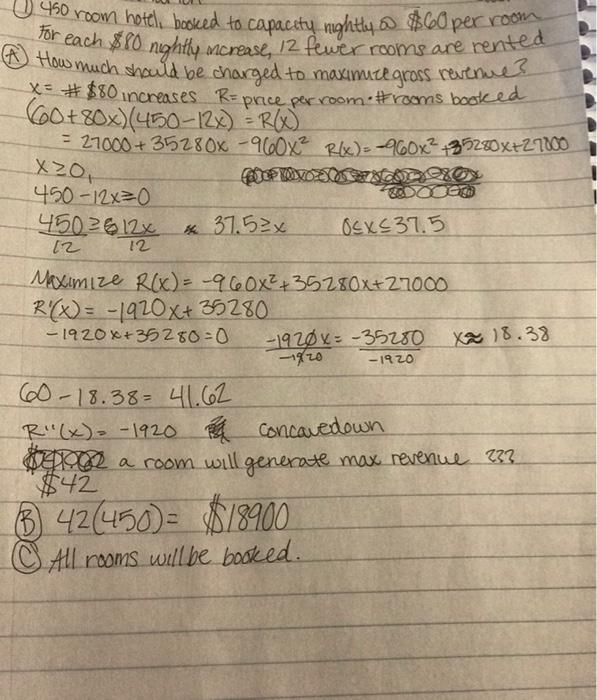 ① 450 room hotel, booked to capacity nightly @ $60 per room
for each $80 nightly increase, 12 fewer rooms are rented
Ⓐ How much should be charged to maximize gross revenue?
x = # $80 increases R = price per room · # rooms booked
(60+80x)(450-12x) = R(x)
= 27000 + 35280x - 960x² R(x) = -960x² + 35280x + 27000
x ≥ 0,
450 - 12x ≥ 0
450 ≥ 12x 37.5 ≥ x 0 ≤ x ≤ 37.5
12 12
Maximize R(x) = -960x² + 35280x + 27000
R'(x) = -1920x + 35280
-1920x + 35280 = 0 -1920x = -35280 x ≈ 18.38
-1920 -1920
60 - 18.38 = 41.62
R''(x) = -1920 concave down
a room will generate max revenue ???
$42
Ⓑ 42(450) = $18900
Ⓒ All rooms will be booked.